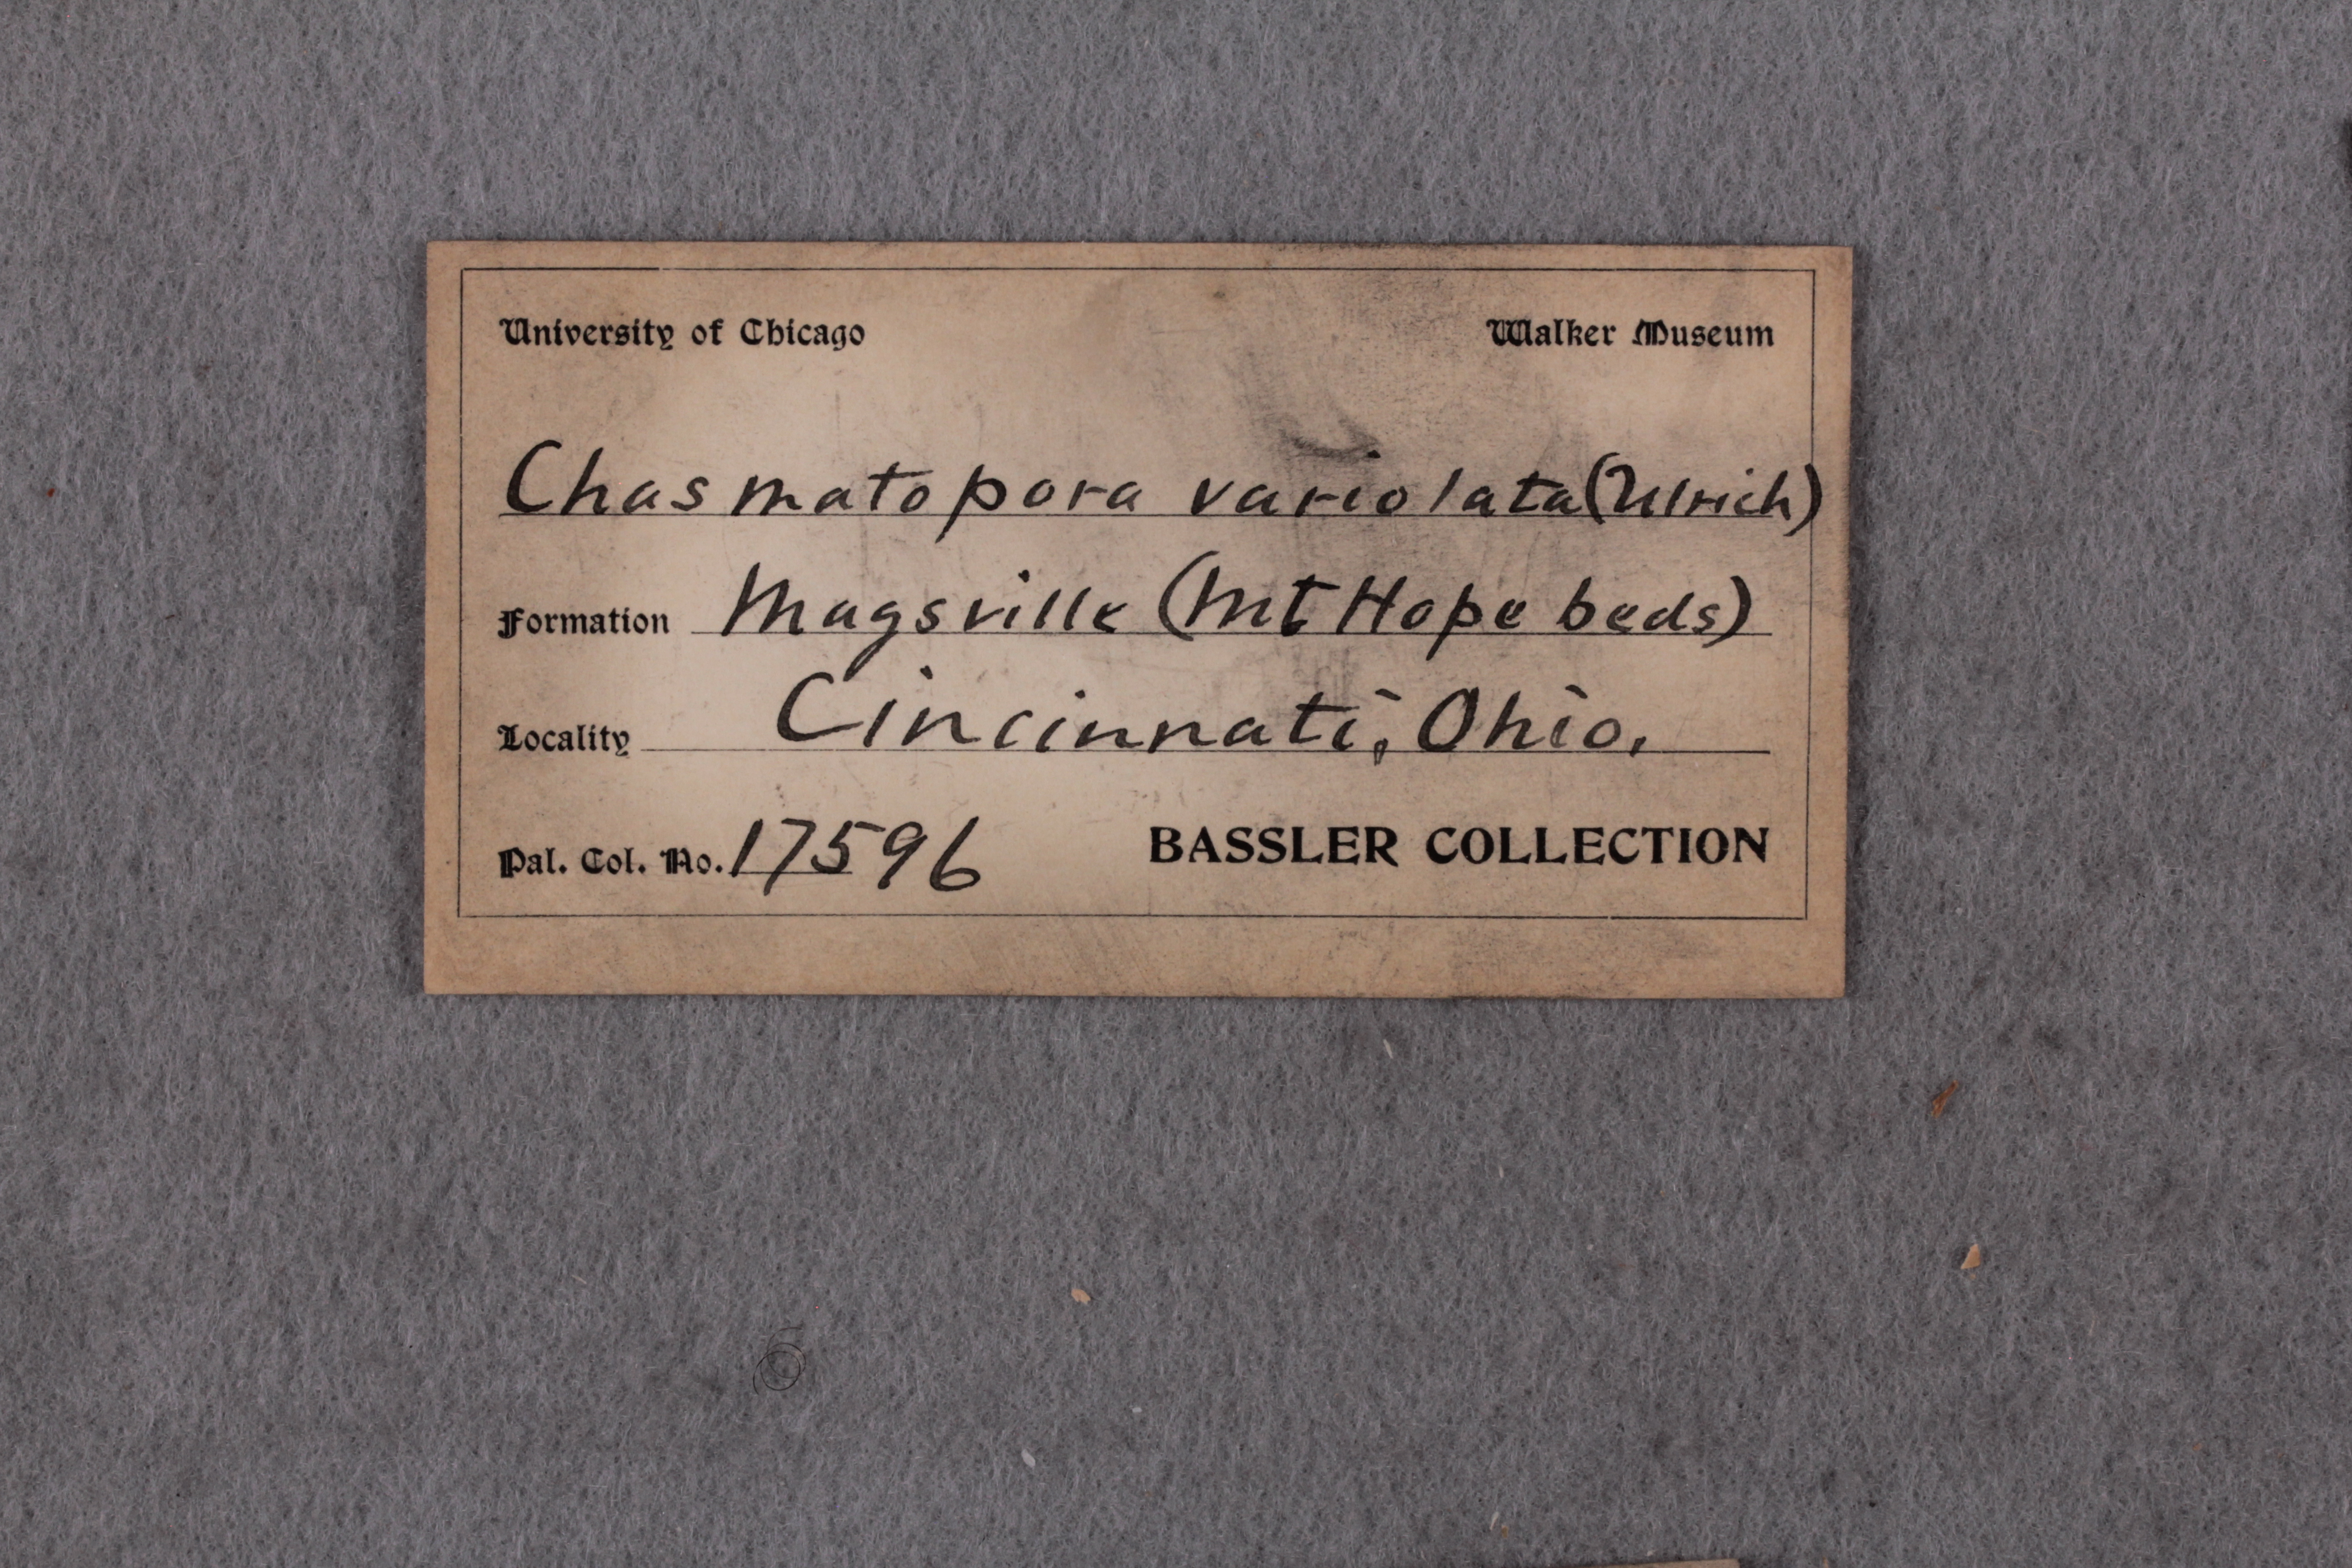 University of Chicago Walker Museum
Chasmatopora variolata (Ulrich)
Formation Maysville (Mt Hope beds)
Locality Cincinnati, Ohio.
Pal. Col. No. 17596 BASSLER COLLECTION